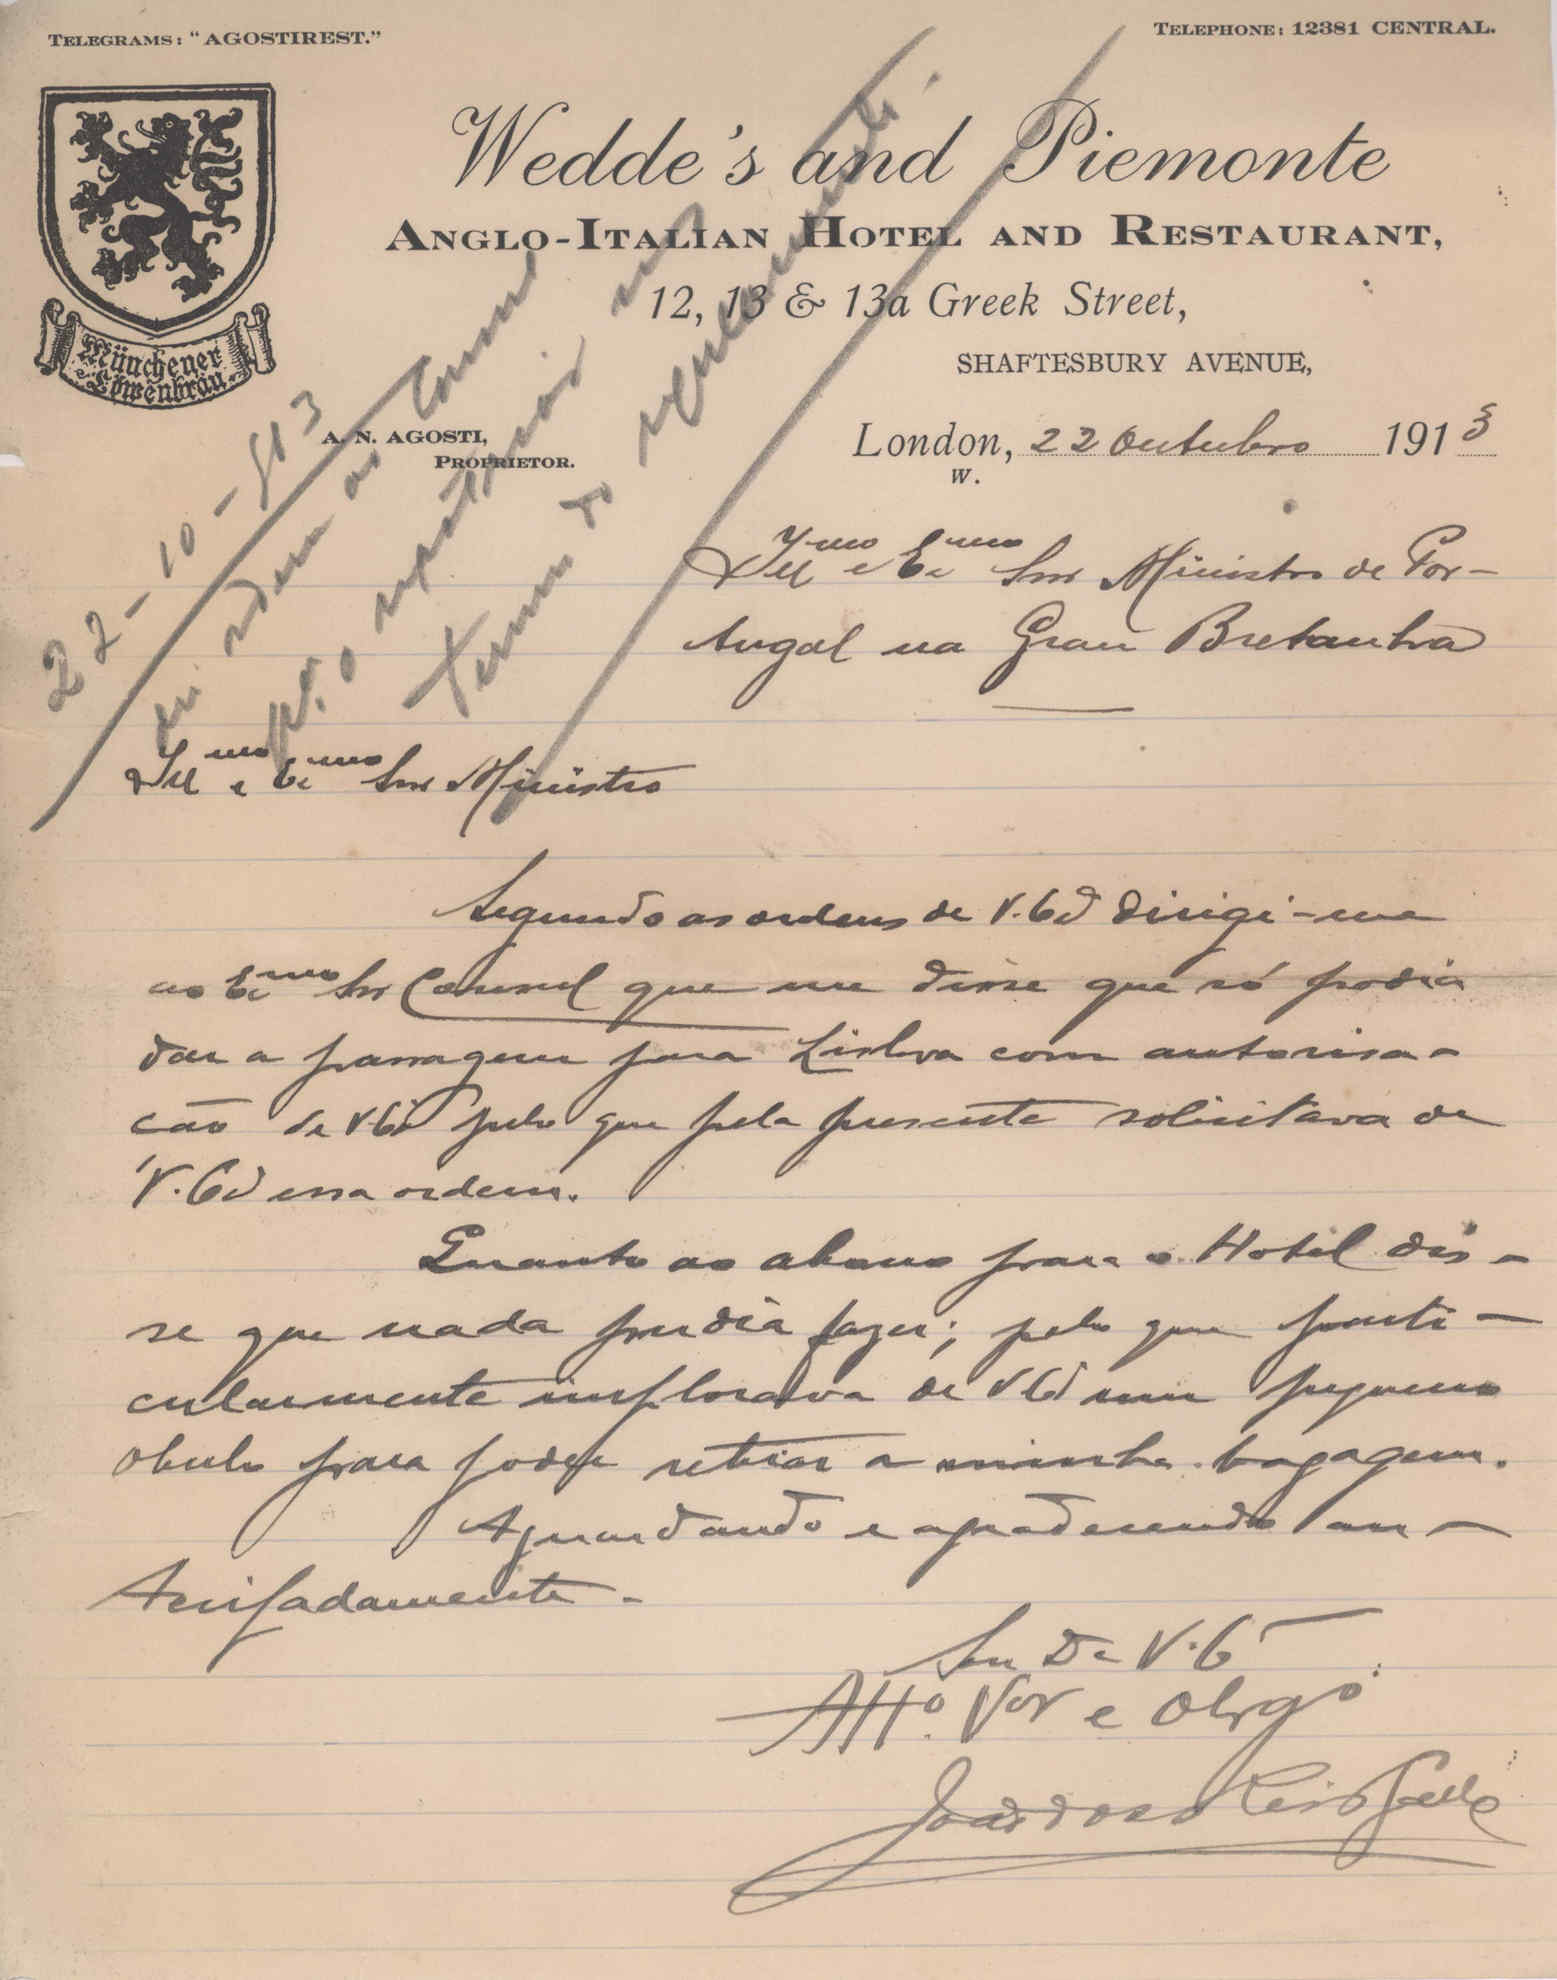 TELEGRAMS: "AGOSTIREST."
TELEPHONE: 12381 CENTRAL.
Wedde's and Piemonte
ANGLO-ITALIAN HOTEL AND RESTAURANT,
12, 13 & 13a Greek Street,
SHAFTESBURY AVENUE,
Münchener
Löwenbräu
A. N. AGOSTI,
PROPRIETOR.
London, 22 Outubro 1913
W.
22-10-913
dei ordem ao Consul
pª. o repatriar nos
termos do regulamento.
Illmo e Exmo Snr Ministro de Por-
tugal na Gran Bretanha
Illmo e Exmo Snr Ministro
Segundo as ordens de V. Ex dirigi-me
ao Exmo Snr Consul que me disse que só podia
dar a passagem para Lisboa com autorisa-
cão de V. Ex pelo que pela presente solicitava de
V. Ex essa ordem.
Quanto ao abono para o Hotel dis-
se que nada podia fazer; pelo que parti-
cularmente implorava de V Ex um pequeno
obulo para poder retirar a minha bagagem.
Aguardando e agradecendo an-
tecipadamente.
Sou De V. E
Atto. Vor e Obrgo